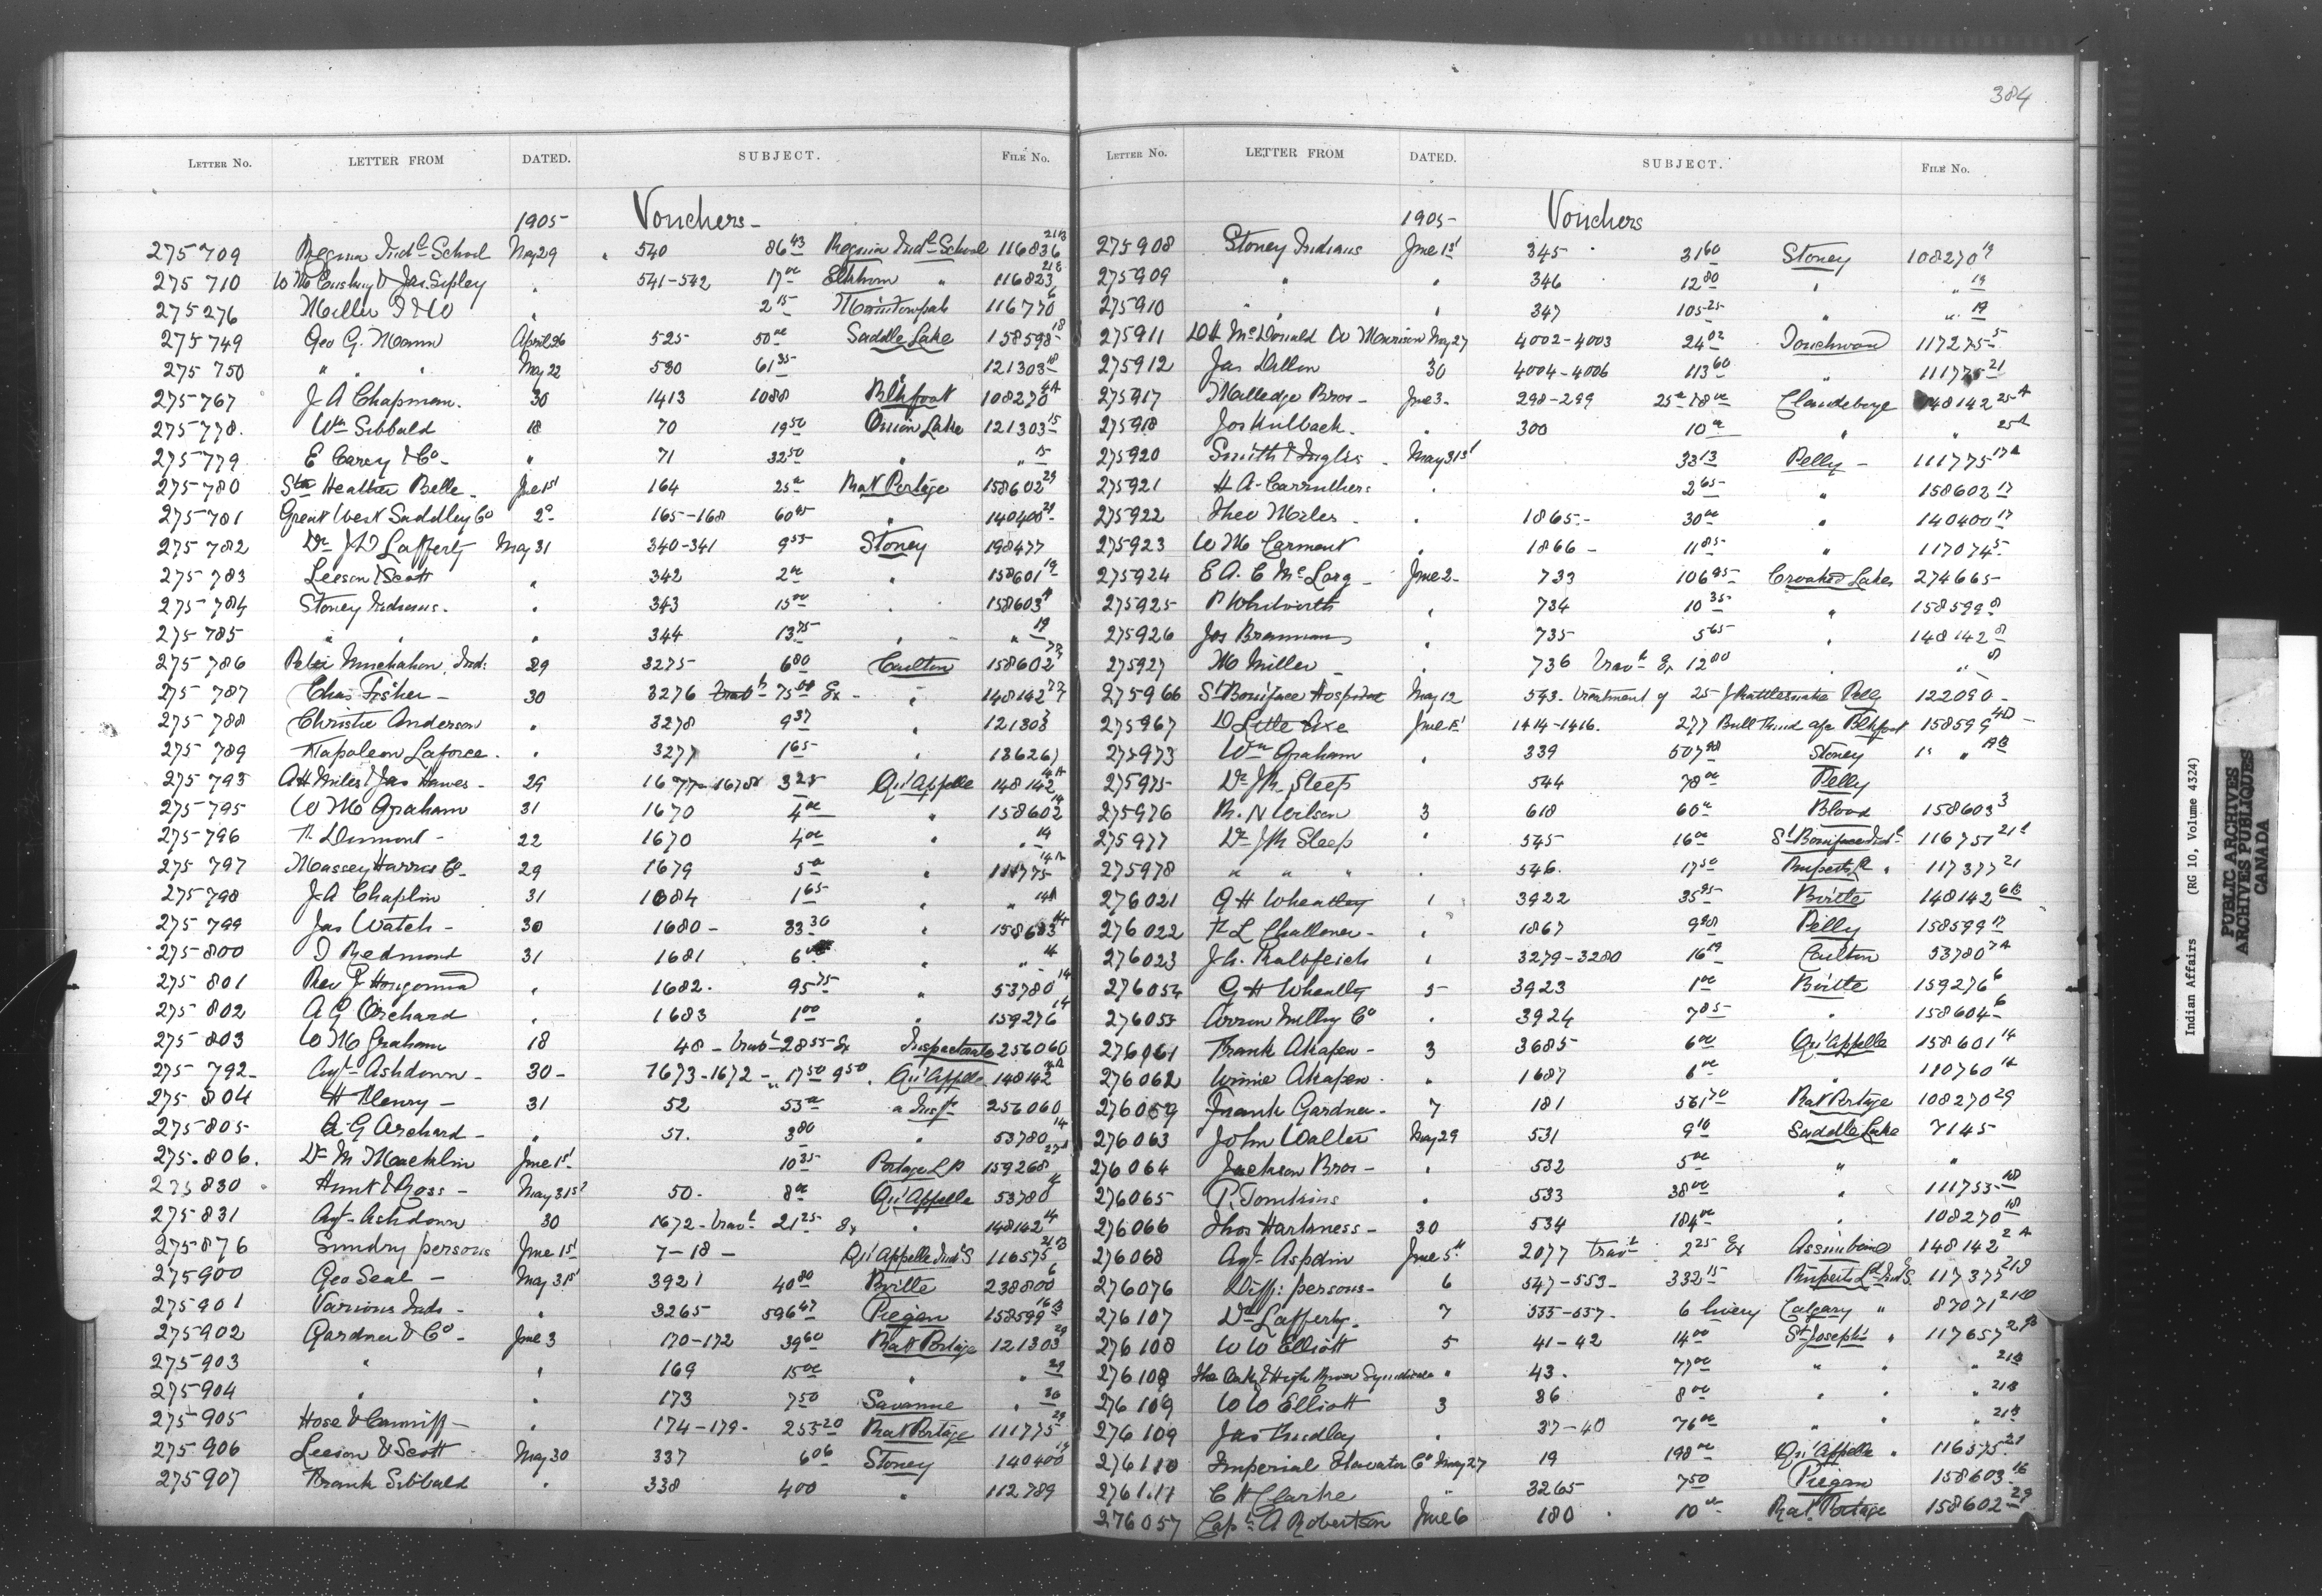 384
LETTER NO. LETTER FROM DATED. SUBJECT. FILE NO.
1905 Vouchers
275709 Regina Indl School May 29 540 86 43 Regina Indl School 116836 21B
275710 Jas. Sipley " 541-542 17 00 Elkhorn " 116823
275276 Miller " 2 15 116770 6
275749 Geo G. Mann April 26 525 50 00 Saddle Lake 158598 18
275750 " " " May 22 530 61 35 " 121303 18
275767 J A Chapman. 30 1413 1088 Blkfoot 108270 4A
275778. Wm Sibbald 18 70 19 50 Onion Lake 121303 15
275779 E Carey & Co - " 71 32 50 " " 15
275780 Str Heather Belle - June 1st 164 25 00 Rat Portage 158602 29
275781 Great West Saddley Co 2d 165-168 60 95 " 140400 29
275782 Dr J D Lafferty May 31 340-341 9 55 Stoney 198477
275783 Leeson & Scott " 342 2 00 " 158601 19
275784 Stoney Indians. " 343 15 00 " 158603
275785 " " " 344 13 75 " " 19
275786 Peter Indn 29 3275 6 80 Carlton 158602
275787 Chas Fisher - 30 3276 travl 75 00 Ex - " 148142
275788 Christie Anderson " 3278 9 37 " 121303 7
275789 Napoleon Laforce. " 3277 1 65 "
275793 A H Miles & Jas Hawes - 29 1677-1678 3 25 Qu'Appelle 148142 14A
275795 W M Graham 31 1670 4 00 " 158602 14
275796 Dumont - 22 1670 4 00 " " 14
275797 Massey Harris Co - 29 1679 5 00 " 111775 14A
275798 J A Chaplin 31 1684 1 65 " " 14A
275799 Jas Watch - 30 1680 - 33 30 " 158603 14
275800 Redmond 31 1681 6 " " 14
275801 Rev " 1682. 95 75 " 53780 14
275802 A G Orchard " 1683 1 00 " 159276 14
275803 W M Graham 18 48 - travl 28 55 Ex Inspectorate 256060
275792 - Agt Ashdown - 30 - 1673-1672 - " 17 50 9 50 " Qu'Appelle 148142
275804 H Henry - 31 52 53 00 " Insp 256060
275805 - A G Orchard - " 51. 3 80 " 53780 14
275.806. Dr M Macklin June 1st 10 35 Portage L P 159268
275830 Hunt & Goss - May 31st 50. 8 00 Qu'Appelle 53780 14
275831 Agt Ashdown 30 1672 - travl 21 25 Ex " 148142 14
275876 Sundry persons June 1st 7-18 - Qu'Appelle Indl S 116575 21B
275900 Geo Seal - May 31st 3921 40 80 Birtle 238800 6
275901 Various Inds - " 3265 596 47 Piegan 158599 16B
275902 Gardner & Co - June 3 170-172 39 60 Rat Portage 121303 29
275903 " " 169 15 00 " " 29
275904 " " 173 7 50 Savanne " 30
275905 Hose & Canniff - " 174-179 - 255 20 Rat Portage 111775 29
275906 Leeson & Scott May 30 337 6 06 Stoney 140400 19
275907 Frank Sibbald " 338 4 00 " 112789
LETTER NO. LETTER FROM DATED. SUBJECT. FILE NO.
1905 - Vouchers
275908 Stoney Indians June 1st 345 31 60 Stoney 108270 19
275909 " " 346 12 80 " " 19
275910 " " 347 105 25 " " 19
275911 D H McDonald W Morrison May 27 4002-4003 24 02 Touchwood 117275 5
275912 Jas Dillon 30 4004-4006 113 60 " 111775 21
275917 Malledge Bros - June 3 - 298-299 25 00 18 00 Clandeboye 148142 25A
275918 Jos Kulback. " 300 10 00 " " 25A
275920 Smith & Inglis - May 31st 33 13 Pelly - 111775 17A
275921 H A Carruthers " 2 65 " 158602 17
275922 Theo " 1865 - 30 00 " 140400 17
275923 W M Carment " 1866 - 11 85 " 117074 5
275924 E A. C McLarg - June 2 - 733 106 95 Crooked Lakes 274665
275925 P Whilworth " 734 10 35 " 158599 8
275926 Jos Brannan " 735 5 65 " 148142 8
275927 M Miller - " 736 travl Ex 12 80 " " 8
275966 St Boniface Hospital May 12 543. treatment of 25 J Rattlesnake Pelly 122090 -
275967 D Little Axe June 1st 1414-1416. 277 Bull Blkfoot 158599 4D
275973 Wm Graham " 339 507 98 Stoney " "
275975 Dr J R Sleep 544 78 00 Pelly
275976 R. N Wilson 3 618 60 00 Blood 158603 3
275977 Dr J R Sleep " 545 16 00 St Boniface Indl 116751
275978 " " " " 546. 17 50 Ruperts Ld " 117377 21
276021 G H Wheatley 1 3922 35 95 Birtle 148142 6B
276022 F L Challoner - " 1867 9 98 Pelly 158599 17
276023 J. G. Kalbfeich 1 3279-3280 16 19 Carlton 53780 7A
276054 G H Wheatly 5 3923 1 00 Birtle 159276 6
276055 Arrow Milling Co " 3924 7 85 " 158604 6
276061 Frank Akapew - 3 3685 6 00 Qu'Appelle 158601 14
276062 Winnie Akapew. " 1687 6 00 " 110760 14
276059 Frank Gardner - 7 181 561 70 Rat Portage 108270 29
276063 John Walter May 29 531 9 10 Saddle Lake 7145
276064 Jackson Bros - " 532 5 00 " "
276065 P. Tomkins " 533 38 00 " 111755 18
276066 Thos Harkness - 30 534 184 00 " 108270 18
276068 Agt Aspdin June 5th 2077 travl 2 25 Ex Assiniboine 148142 2A
276076 Diff: persons - 6 547-553 - 332 15 Ruperts Ld Indl S. 117377 21B
276107 Dr Lafferty. 7 555-557. 6 livery Calgary " 87071
276108 W W Elliott 5 41-42 14 00 St Joseph's " 117657 21B
276108 The Calg & High River Syndicate " 43. 77 00 " " " 21B
276109 W W Elliott 3 36 8 00 " " " 21B
276109 Jas Findlay " 37-40 76 00 " " " 21B
276110 Imperial Elevator Co May 27 19 198 00 Qu'Appelle " 116575 21
276111 C H Clarke " 3265 7 50 Piegan 158603 16
276057 Capt A Robertson June 6 180 10 00 Rat Portage 158602 29
Indian Affairs (RG 10, Volume 4324)
PUBLIC ARCHIVES
ARCHIVES PUBLIQUES
CANADA